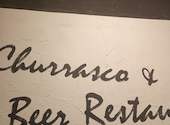 Churrasco &
Beer Restau